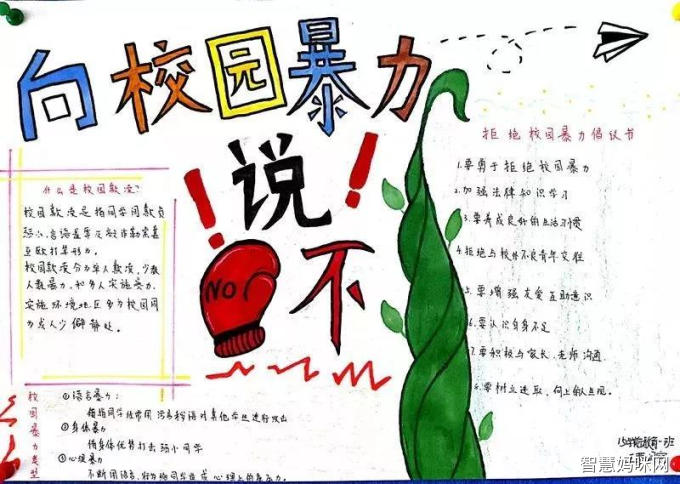 向校园暴力
说
不
NO!
什么是校园欺凌?
校园欺凌是指同学间欺负
弱小,言语羞辱及敲诈勒索甚
至殴打等形为。
校园欺凌分为单人欺凌,少数
人暴力,和多人实施暴力,
实施环境地区多为校园周
为或人少僻静处。
拒绝校园暴力倡议书
1.要勇于拒绝校园暴力
2.加强法律知识学习
3.要养成良好的生活习惯
4.拒绝与校外不良青年交往
5.要增强友爱互助意识
6.要认识自身不足
7.要积极与家长,老师沟通
8.要树立进取、向上的人生观。
校园暴力类型
①语言暴力:
②身体暴力
借身体优势打击弱小同学
③心理暴力
智慧妈咪网